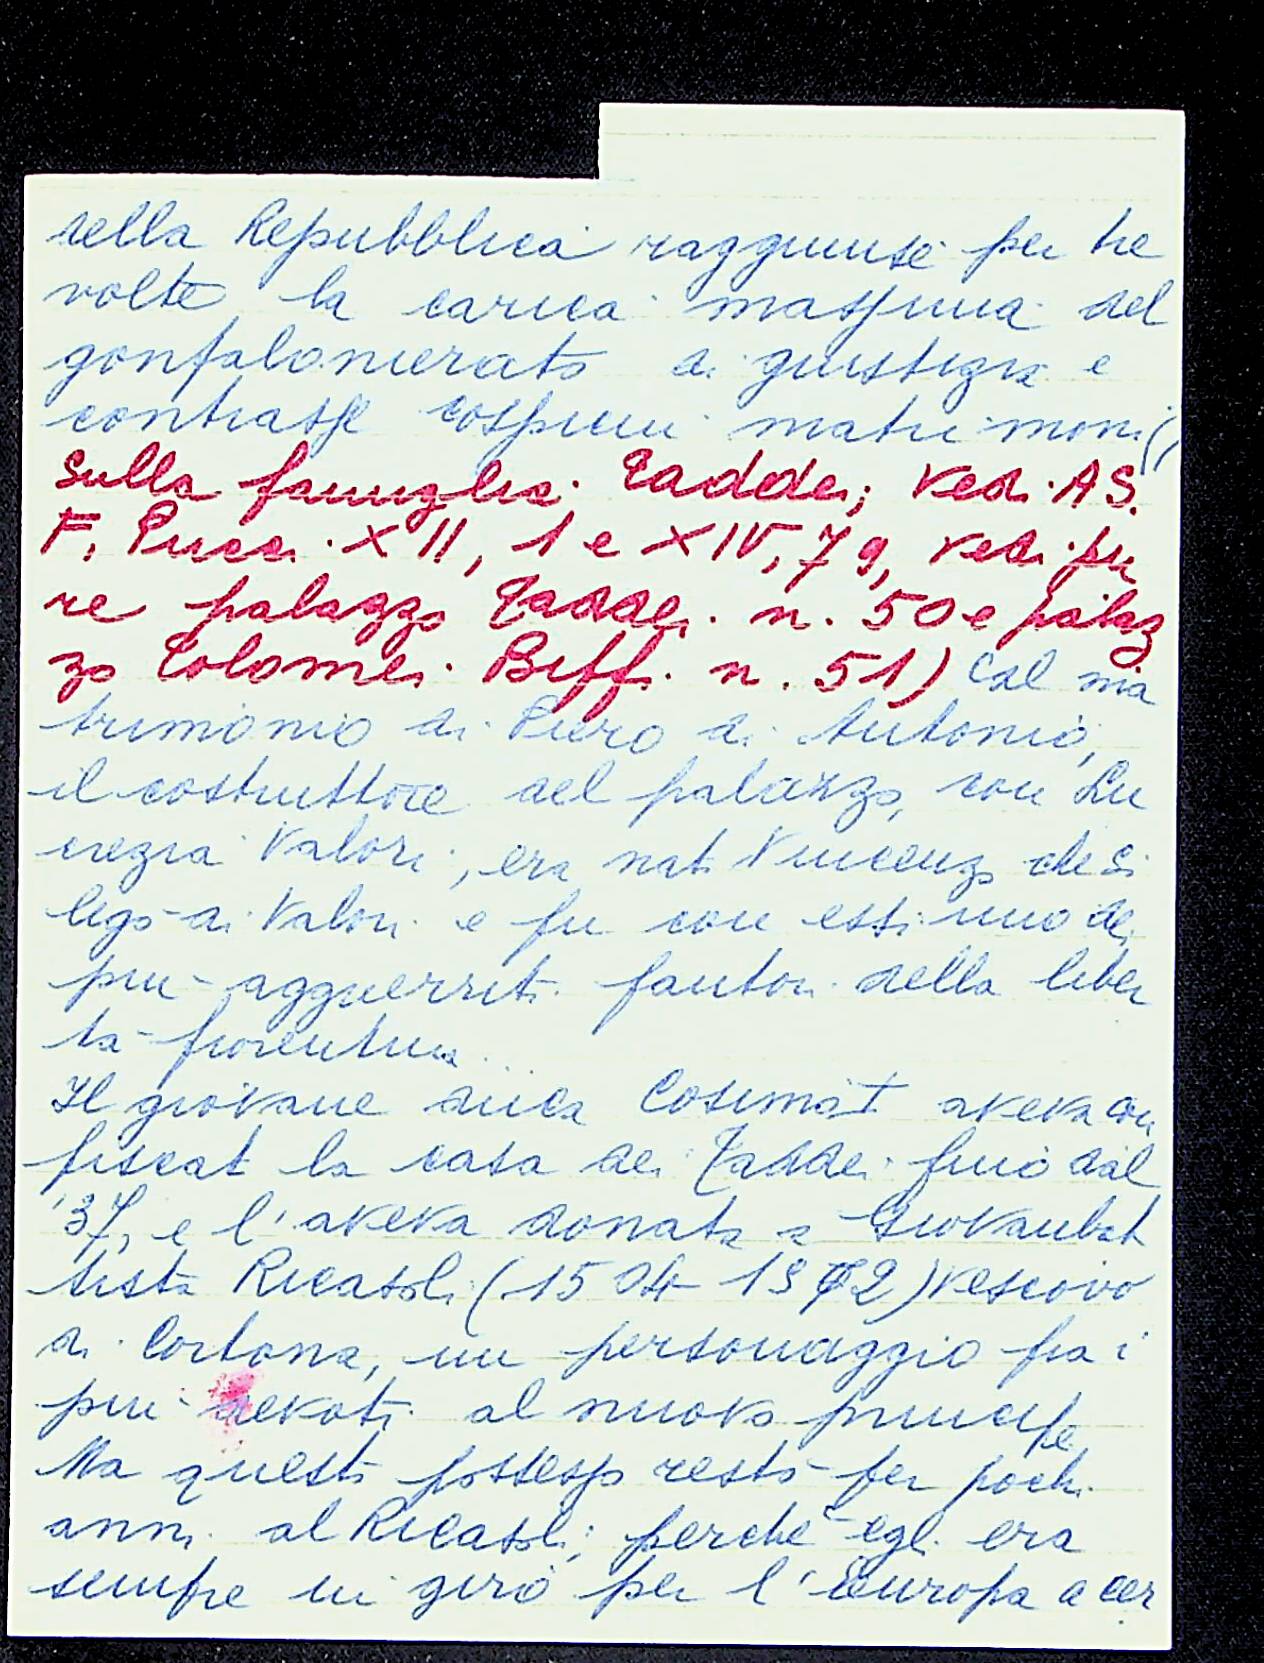 della Repubblica raggiunse per tre
volte la carica massima del
gonfalonierato di giustizia e
contrasse cospicui matrimoni (
Sulla famiglia Taddei, vedi AS.
F. Pucci XII, 1 e XIV, 79, vedi pu
re palazzo Taddei n. 50 e palaz
zo Tolomei Biffi n. 51) Dal ma
trimonio di Piero di Antonio,
il costruttore del palazzo, con Lu
crezia Valori, era nato Vincenzo che si
legò ai Valori e fu con essi uno dei
più agguerriti fautori della liber
tà fiorentina.
Il giovane duca Cosimo I aveva con
fiscato la casa dei Taddei fino dal
'37, e l'aveva donata a Giovanbat
tista Ricasoli (1504 1572) vescovo
di Cortona, un personaggio fra i
più devoti al nuovo principe.
Ma questo possesso restò per pochi
anni al Ricasoli; perchè egli era
sempre in giro per l'Europa a cer